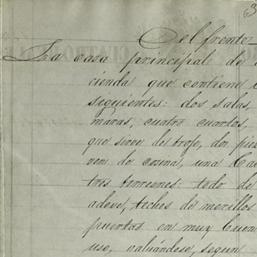 Del frente
La casa principal de
cienda que contiene
siguientes: dos salas,
maras, cuatro cuartos,
que sirve de troje, dos
ven de cocina, una
tres torreones: todo de
adove, techos de morillos
puertas en muy buen
uso, valuándose, segun